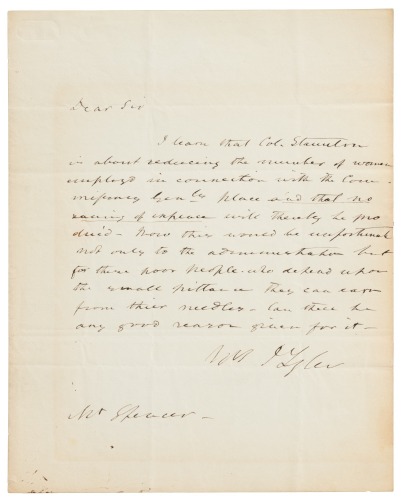 Dear Sir
I learn that Col. Staunton
is about reducing the number of women
employd in connection with the Com-
missary Genls place and that no
saving of expence will thereby be pro
ducd - Now this would be unfortunate
not only to the administration but
for these poor people who depend upon
the small pittance they can earn
from their needles - Can there be
any good reason given for it -
J Tyler
Mr Spencer -